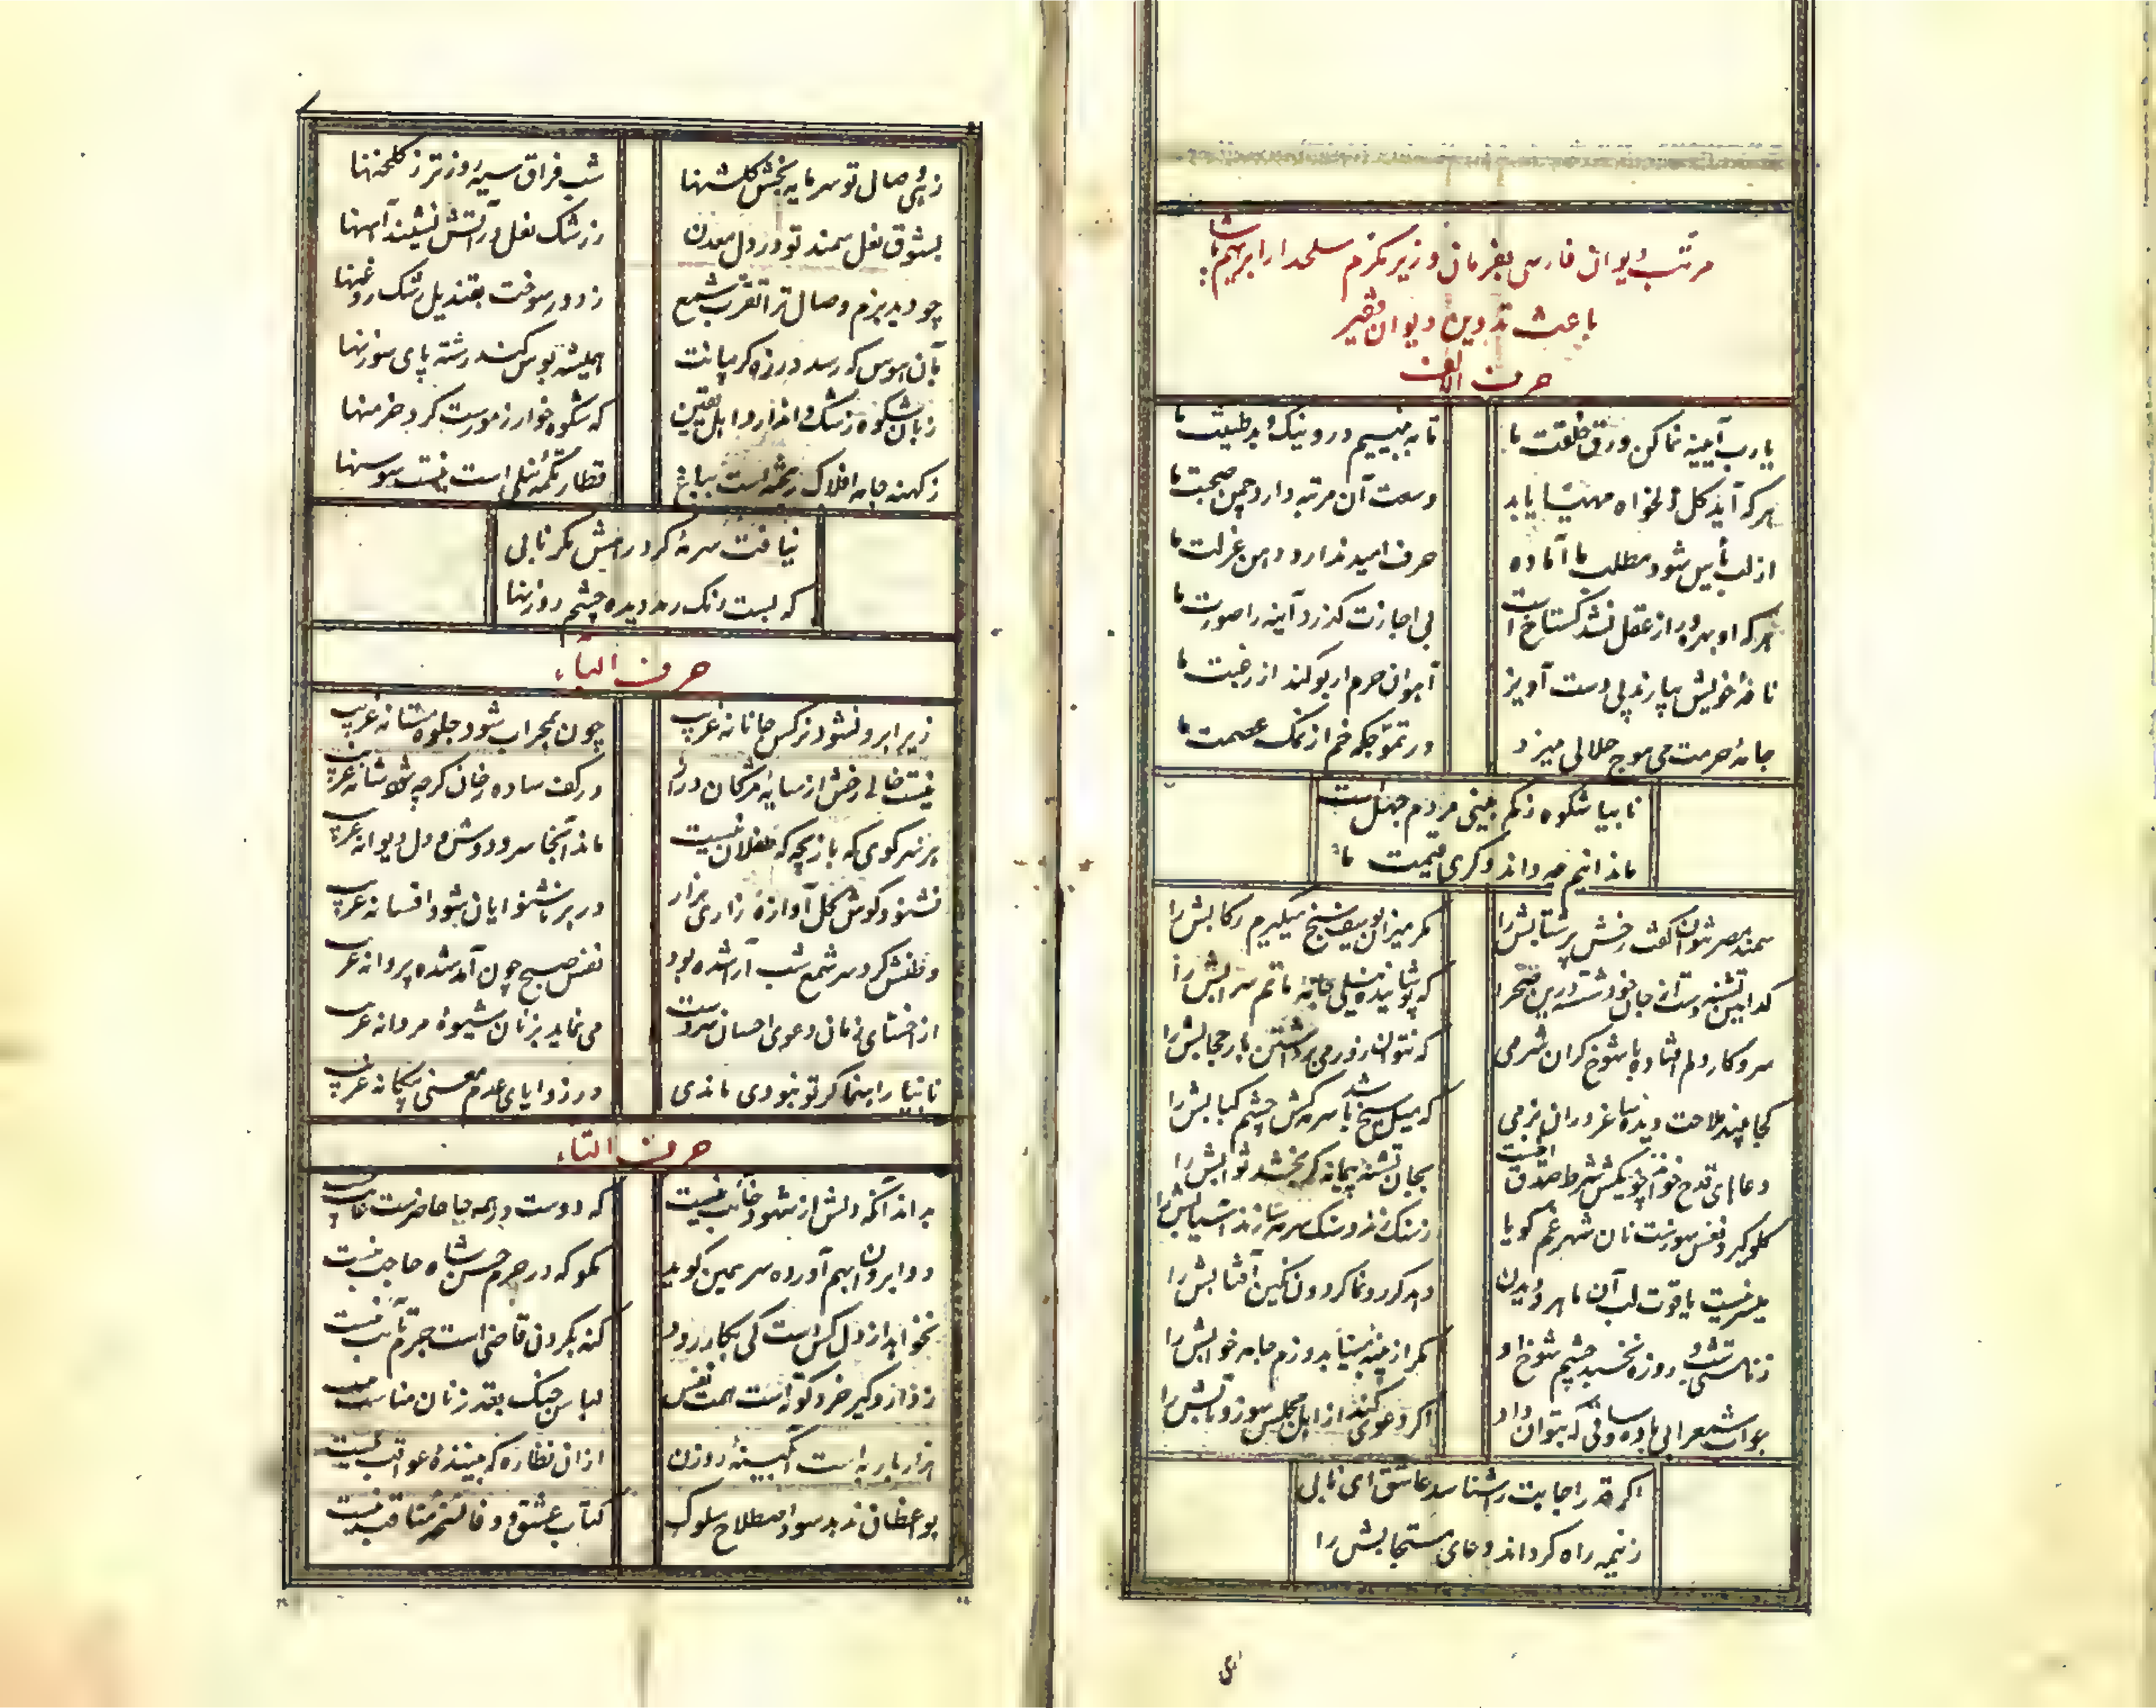 مرتب دیوان فارسی بفرمان وزیر مکرم سلحدار ابراهیم پاشا
باعث تدوین دیوان فقیر
حرف الالف
یارب آیینه نما کن ورق خلقت ما
تا به بینیم درو نیک و بد طینت ما
هر که آید گل دلخواه مهیا یابد
وسعت آن مرتبه دارد چمن صحبت ما
از لب یأس شود مطلب ما آماده
حرف امید ندارد دهن عزلت ما
هر که او بهره ور از عقل نشد گستاخ است
بی اجازت گذرد آینه را صورت ما
نافهٔ خویش بیارند پی دست آویز
آهوان حرم ار بو کند از رغبت ما
جامهٔ حرمت می موج حلالی میزد
در تموجکه خم از نمک عصمت ما
نابیا شکوه ز کم بینی مردم جهلست
ما ندانیم چه داند دگری قیمت ما
سمند مصر نتوان گفت رخش پر شتابش را
مگر میزان یوسف سنج میگیرم رکابش را
کدامین تشنه دست از جان خود شسته درین صحرا
که پوشانیده نیلی جامهٔ ماتم سرابش را
سروکار دلم افتاده با شوخ گران شرمی
که نتوان زور می برداشتن بار حجابش را
که میل سیخ باشد سرمه کش چشم کبابش را
بجان تشنه پیمانه گر بخشد ثوابش را
گلوگیر نفس سوزست نان شهر غم گویا
ز سنگ زند و سنگ سرمه سازند آسیابش را
میسر نیست یاقوت لب آن ماهرو دیدن
دهد گر رونما گردون نگین آفتابش را
مگر از پنبهٔ مینا بدوزم جامه خوابش را
اگر دعوی کند از اهل مجلس سوز و تابش را
اگر قدر اجابت را شناسد عاشق ای نابی
ز نیمه راه گرداند دعای مستجابش را
زهی وصال تو سرمایه بخش گلشنها
شب فراق سیه روزتر ز گلخنها
بشوق نعل سمند تو در دل معدن
ز رشک نعل در آتش نشیند آهنها
چو دید بزم وصال ترا تقرب شمع
ز دود سوخت بقندیل رشک روغنها
بآن هوس که رسد در زه گریبانت
همیشه بوس کند رشته پای سوزنها
زبان شکوه ز شک وا ندارد اهل یقین
که شکوه خوار ز مورست گرد خرمنها
ز کهنه جامه افلاک ریخته است بباغ
قطار تکمهٔ نیلی است نیست سوسنها
نیافت سرمهٔ گرد رهش مگر نابی
که بست رنگ رمد دیده چشم روزنها
حرف الباء
زیر ابرو نشود نرگس جانانه غریب
چون بمحراب شود جلوه مستانه غریب
نیست خالی رخش از سایهٔ مژگان دراز
در کف ساده رخان گرچه شود شانه غریب
بر سر کوی که بازیچه که طفلان نیست
ماند آنجا سر و دوش و دل دیوانه غریب
نشنود گوش گل آوازهٔ زاری هزار
در بر ناشنوایان شود افسانه غریب
وطنش گرد سر شمع شب آرا شده بود
نفس صبح چون آمد شده پروانه غریب
از خنثای زمان دعوی احسان سردست
می نماید بزنان شیوهٔ مردانه غریب
نابیا راهنما گر تو نبودی ماندی
در زوایای عدم معنی بیگانه غریب
حرف التاء
بداند آنکه دلش از شهود غائب نیست
که دوست در همه جا حاضرست غائب نیست
دو ابروان بهم آورده سر همین گوید
مگو که در حرم حسن شاه حاجب نیست
نخواهد از دل کس راست کی بکار رود
لباس جنگ بقد زنان مناسب نیست
هزار بار به است آبگینهٔ روزن
ازان نظاره که بینندهٔ عواقب نیست
بوعظان ندهد سود اصطلاح سلوک
کتاب عشق و وفا نسخهٔ مناقب نیست